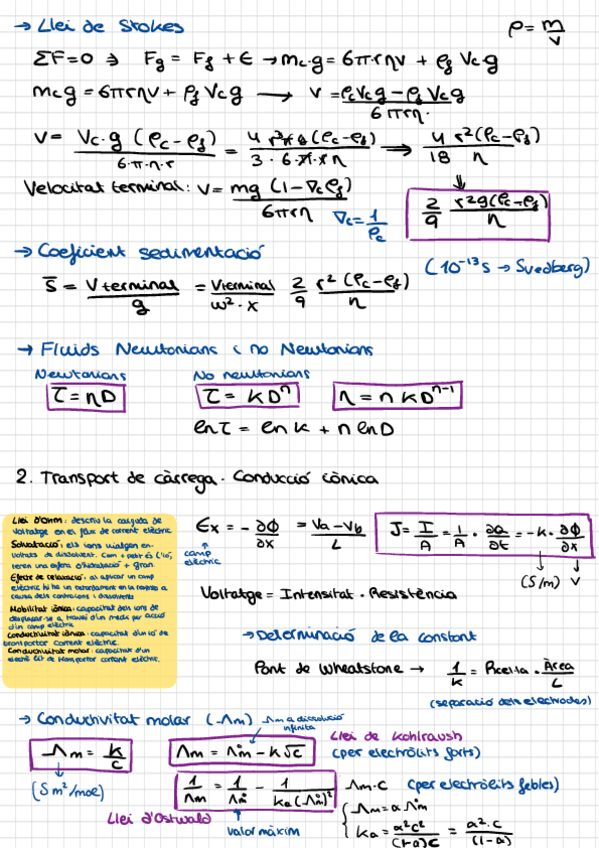 → Llei de Stokes
ρ = m/v
ΣF=0 ⇒ Fg = Ff + E → mc·g = 6π·r·ηv + ρf Vc g
mc g = 6πrηv + ρf Vc g → v = ρcVcg - ρf Vcg / 6πrη
v = Vc·g (ρc-ρf) / 6·π·η·r = 4 r³π g (ρc-ρf) / 3·6·π·r η ⇒ 4 r²(ρc-ρf) / 18 η
Velocitat terminal: v = mg (1-∇cρf) / 6πrη ∇c = 1/ρc
2/9 r²g(ρc-ρf) / η
→ Coeficient sedimentació
(10⁻¹³s → Svedberg)
S̄ = v terminal / g = v terminal / ω²·x 2/9 r² (ρc-ρf) / η
→ Fluids Newtonians i no Newtonians
Newtonians No newtonians
τ = ηD τ = kDⁿ η = n k Dⁿ⁻¹
ln τ = ln k + n ln D
2. Transport de càrrega. Conducció iònica
Llei d'Ohm: descriu la caiguda de
voltatge en el flux de corrent elèctric
Solvatació: els ions viatgen en-
voltats de dissolvent. Com + petit és l'ió,
teren una esfera d'hidratació + gran.
Efecte de relaxació: al aplicar un camp
elèctric hi ha un retardament en la resposta a
causa dels contraions i dissolvent
Mobilitat iònica: capacitat dels ions de
desplaçar-se a través d'un medi per acció
d'un camp elèctric
Conductivitat iònica: capacitat d'un ió de
transportar corrent elèctric.
Conductivitat molar: capacitat d'un
electròlit de transportar corrent elèctric.
Ex = - ∂ϕ/∂x = Va-Vb / L
camp
elèctric
J = I/A = 1/A · ∂Q/∂t = -k · ∂ϕ/∂x
(S/m) V
Voltatge = Intensitat · Resistència
→ Determinació de la constant
Pont de Wheatstone → 1/k = Rcel·la · Àrea/L
(separació dels electrodes)
→ Conductivitat molar (Λm)
Λm a dissolució
infinita
Llei de Kohlraush
Λm = k/c Λm = Λ°m - k√c (per electròlits forts)
(S m²/mol)
1/Λm = 1/Λ°m - 1/ka(Λ°m)² Λm·c (per electròlits febles)
Llei d'Ostwald
valor màxim
Λm = α Λ°m
ka = α²c² / (1-α)c = α²·c / (1-α)